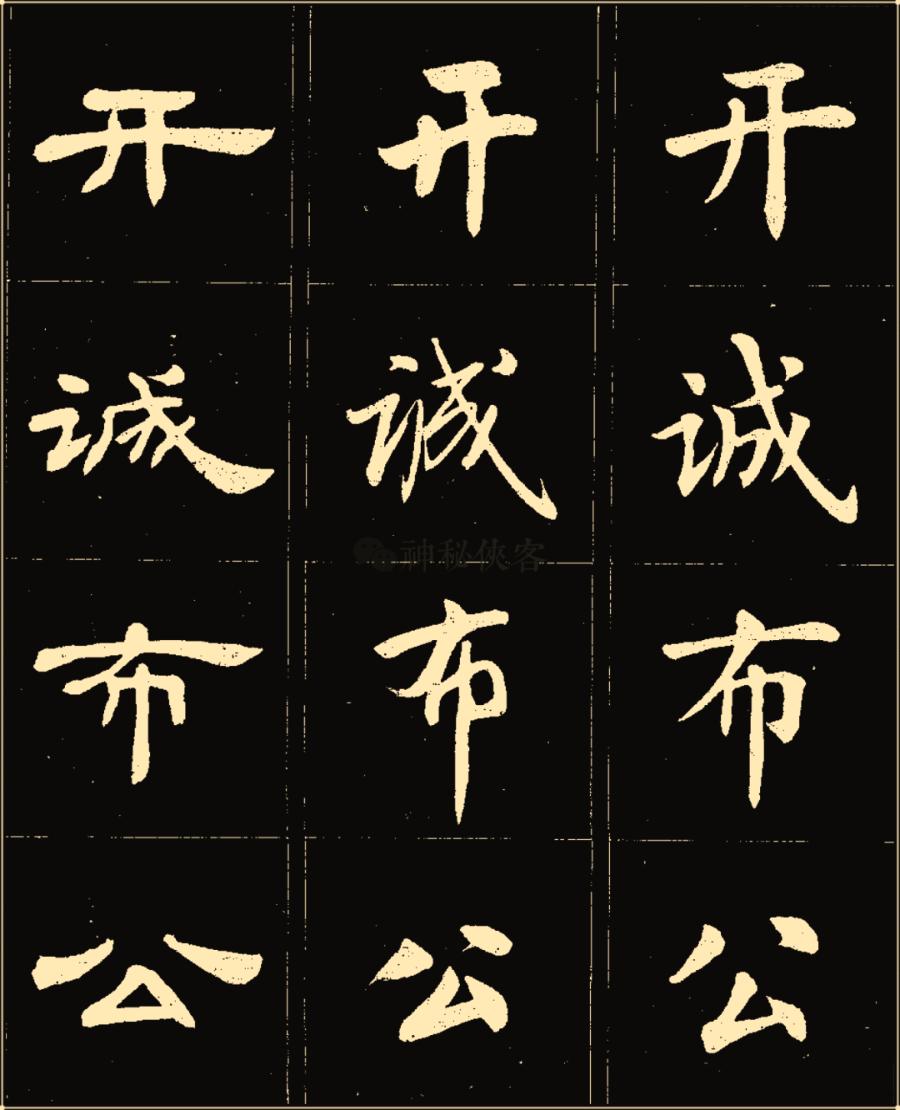 开 开 开
诚 诚 诚
神秘侠客
布 布 布
公 公 公